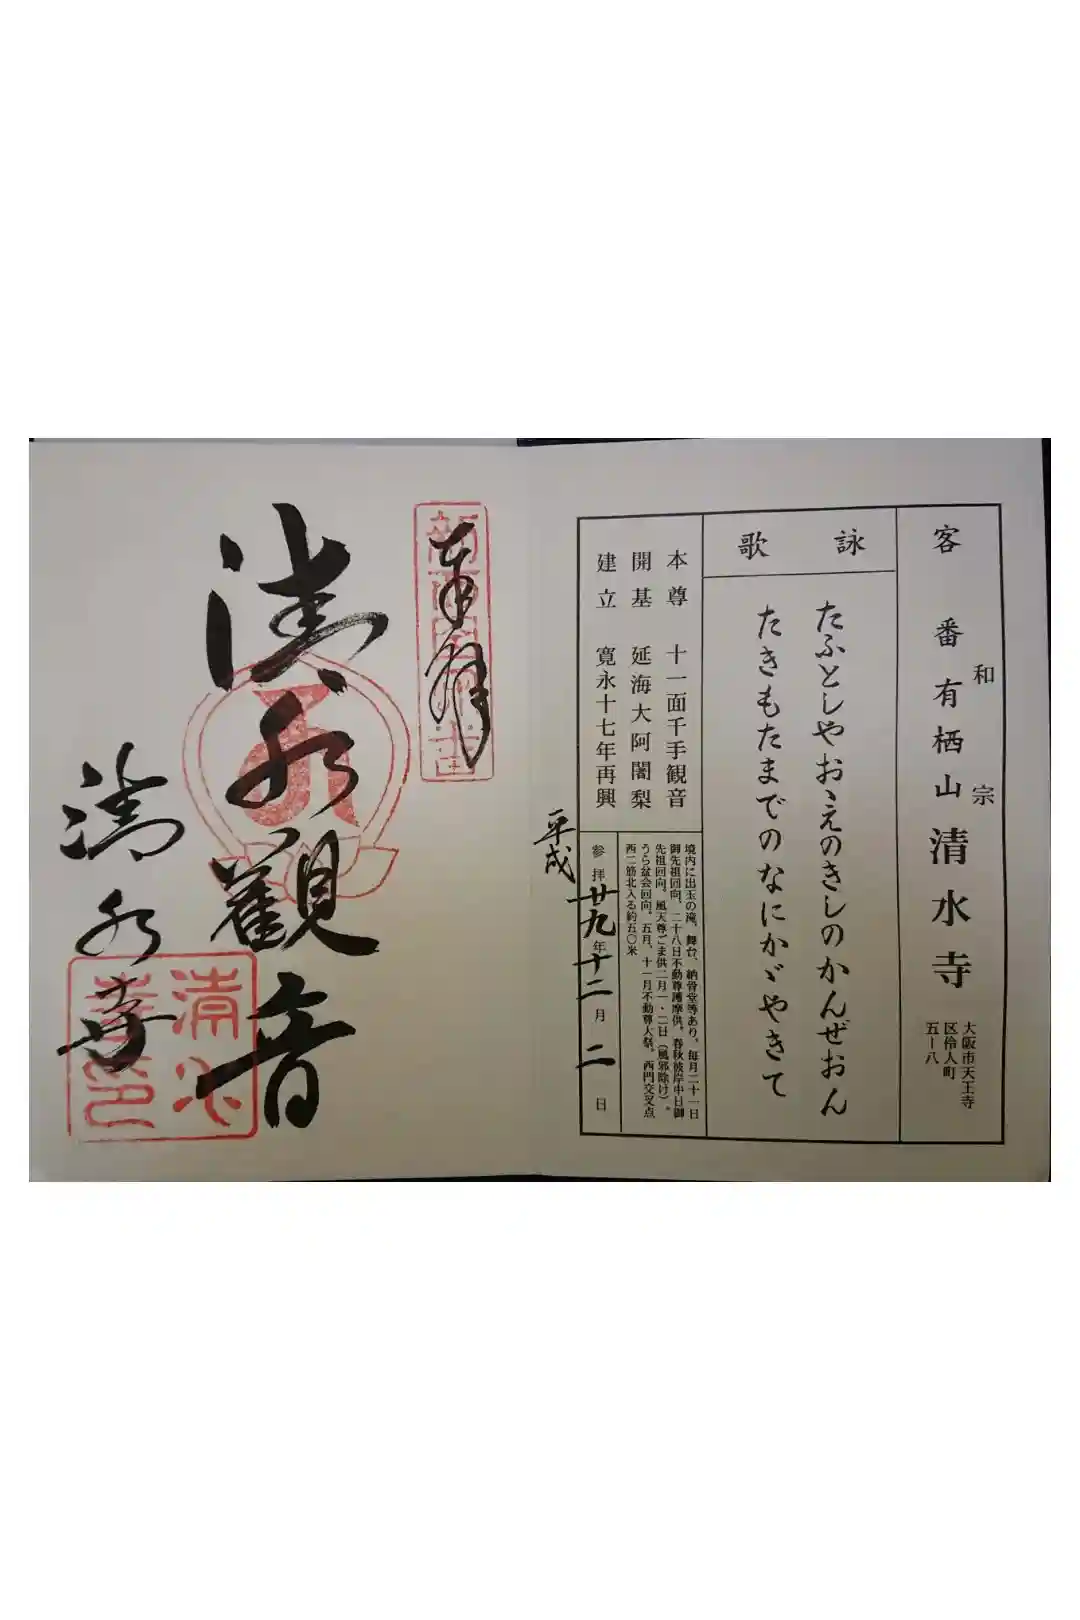 客番 有栖山 清水寺
和宗
大阪市天王寺
区伶人町
五ー八
詠歌
たふとしやおゝえのきしのかんぜおん
たきもたまでのなにかゞやきて
本尊 十一面千手観音
開基 延海大阿闍梨
建立 寛永十七年再興
境内に出玉の滝、舞台、納骨堂等あり。毎月二十一日
御先祖回向、二十八日不動尊護摩供。春秋彼岸中日御
先祖回向。風天尊ごま供二月一、二日(風邪除け)。
うら盆会回向。五月、十一月不動尊大祭。西門交叉点
西二筋北入る約五〇米
平成
参拝 廿九年十二月二日
奉拝
清水観音
清水寺